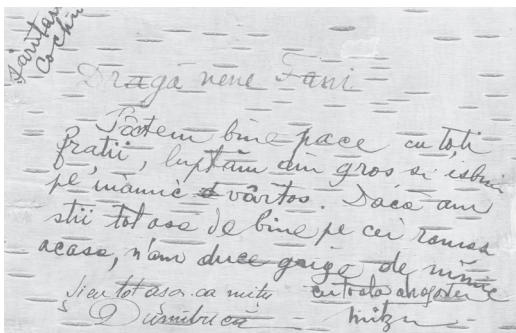 sărutări
Cochi
Dragă nene Fani
Sâtem bine pace cu toți
frații, luptăm din gros si isbim
pe inamic vârtos. Dacă am
stii tot asa de bine pe cei ramasi
acasa, n'am duce grige de nimic
Si eu tot asa ca mitu cu toata dragostea
Dumbrică Mitzu